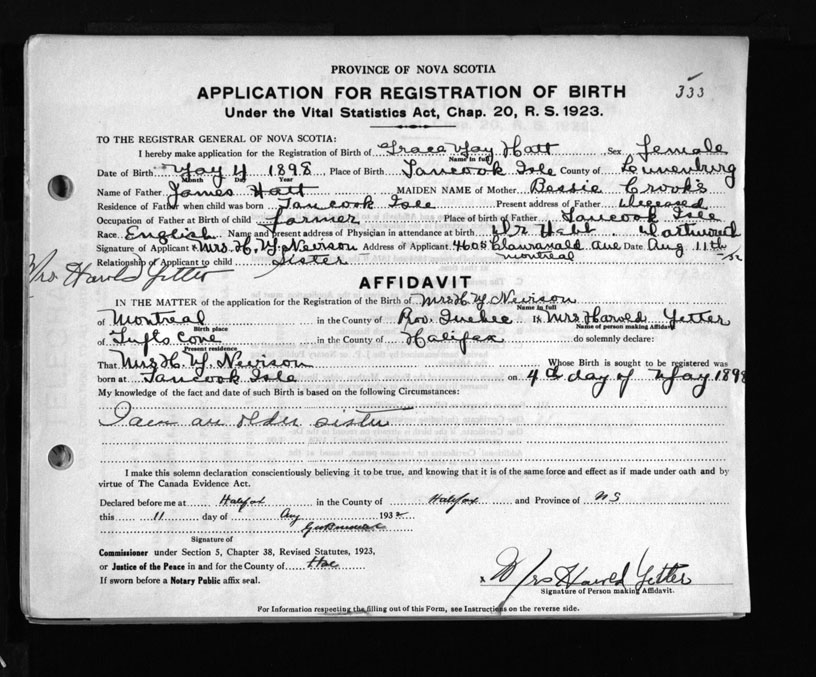 PROVINCE OF NOVA SCOTIA
APPLICATION FOR REGISTRATION OF BIRTH
333
Under the Vital Statistics Act, Chap. 20, R. S. 1923.
TO THE REGISTRAR GENERAL OF NOVA SCOTIA:
I hereby make application for the Registration of Birth of Grace May Hatt Sex Female
Name in full
Date of Birth May 4 1898 Place of Birth Tancook Isle County of Lunenburg
Month Day Year
Name of Father James Hatt MAIDEN NAME of Mother Bessie Crooks
Residence of Father when child was born Tancook Isle Present address of Father Deceased
Occupation of Father at Birth of child Farmer Place of birth of Father Tancook Isle
Race English Name and present address of Physician in attendance at birth Dr Dartmouth
Signature of Applicant x Mrs. H. Y. Nevison Address of Applicant 4605 Ave Date Aug 11th
Relationship of Applicant to child Sister Montreal
Mrs Harold Yetter
AFFIDAVIT
IN THE MATTER of the application for the Registration of the Birth of Mrs H. Y. Nevison
Name in full
of Montreal in the County of Prov. Quebec I, Mrs Harold Yetter
Birth place Name of person making Affidavit
of Tufts Cove in the County of Halifax do solemnly declare:
Present residence
That Mrs H. Y. Nevison Whose Birth is sought to be registered was
born at Tancook Isle on 4th day of May 1898
My knowledge of the fact and date of such Birth is based on the following Circumstances:
I am an older sister
I make this solemn declaration conscientiously believing it to be true, and knowing that it is of the same force and effect as if made under oath and by
virtue of The Canada Evidence Act.
Declared before me at Halifax in the County of Halifax and Province of NS
this 11 day of Aug 1932
Signature of
Commissioner under Section 5, Chapter 38, Revised Statutes, 1923,
or Justice of the Peace in and for the County of Hx
If sworn before a Notary Public affix seal.
x Mrs Harold Yetter
Signature of Person making Affidavit.
For Information respecting the filling out of this Form, see Instructions on the reverse side.